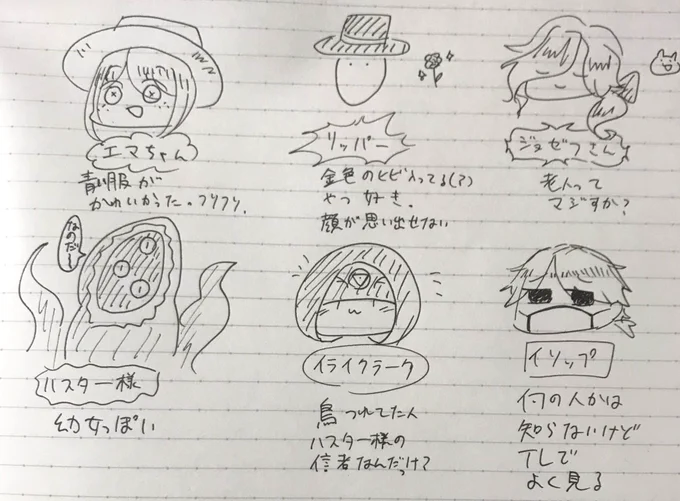 エマちゃん
青い服が
かわいかった。フリフリ.
リッパー
金色のヒビ入ってる(?)
やつ好き.
顔が思い出せない
ジョゼフさん
老人って
マジすか?
なのだー
ハスター様
幼女っぽい
イライクラーク
鳥つれてた人
ハスター様の
信者なんだっけ?
イソップ
何の人かは
知らないけど
TLで
よく見る